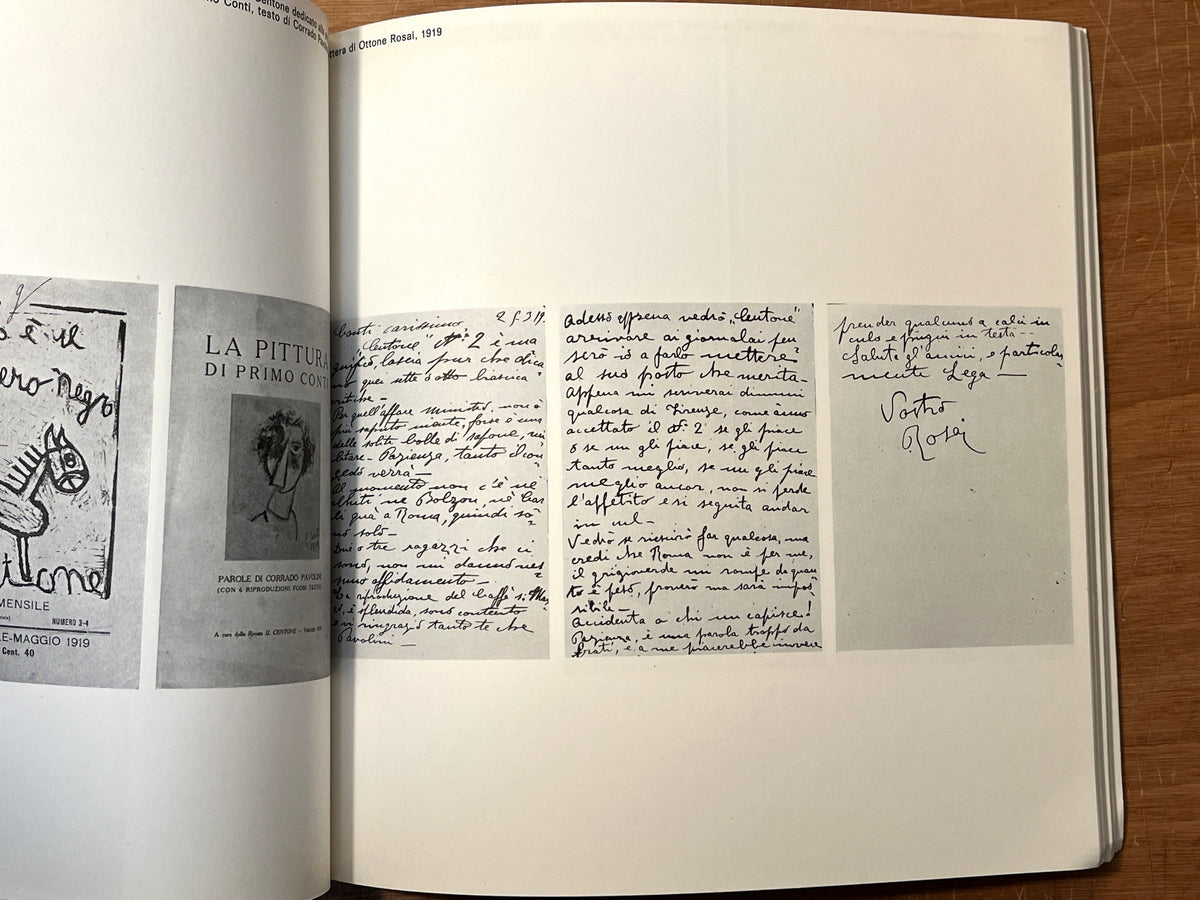 Centone dedicato alla
Primo Conti, testo di Corrado
lettera di Ottone Rosai, 1919
è il
ero negro
tone
MENSILE
NUMERO 3-4
LE-MAGGIO 1919
Cent. 40
LA PITTURA
DI PRIMO CONTI
PAROLE DI CORRADO PAVOLINI
(CON 6 RIPRODUZIONI FUORI TESTO)
A cura della Rivista IL CENTONE - FIRENZE
Conti carissimo,
"Centone" N° 2 è ma
gnifico, lascia pur che dica
no quei sette o otto
Per quell'affare ministro, non ò
più saputo niente, forse è una
delle solite bolle di sapone, mi
litare - Pazienza, tanto il con
gedo verrà -
Al momento non c'è nè
nè Bolzon, nè
li quà a Roma, quindi so
no solo -
Due o tre ragazzi che ci
sono, non mi danno nes
suno affidamento -
La riproduzione del Caffè S. Mar
co, è splendida, sono contento
e vi ringrazio tanto te che
Pavolini -
Adesso appena vedrò "Centone"
arrivare ai giornalai pen
serò io a farlo mettere
al suo posto che merita -
Appena mi scriverai dimmi
qualcosa di Firenze, come ànno
accettato il N° 2 se gli piace
o se un gli piace, se gli piace
tanto meglio, se un gli piace
meglio ancor, non si perde
l'appetito e si seguita andar
in cul -
Vedrò se riescirò far qualcosa, ma
credi che Roma non è per me,
il grigioverde mi rompe da quan
to è peso, proverò ma sarà impos
sibile -
Accidenta a chi un capisce!
Pazienza, è una parola troppo da
frati, e a me piacerebbe invece
prender qualcuno a calci in
culo e pugni in testa -
Saluta gl'amici, e particolar
mente Lega -
Vostro
Rosai